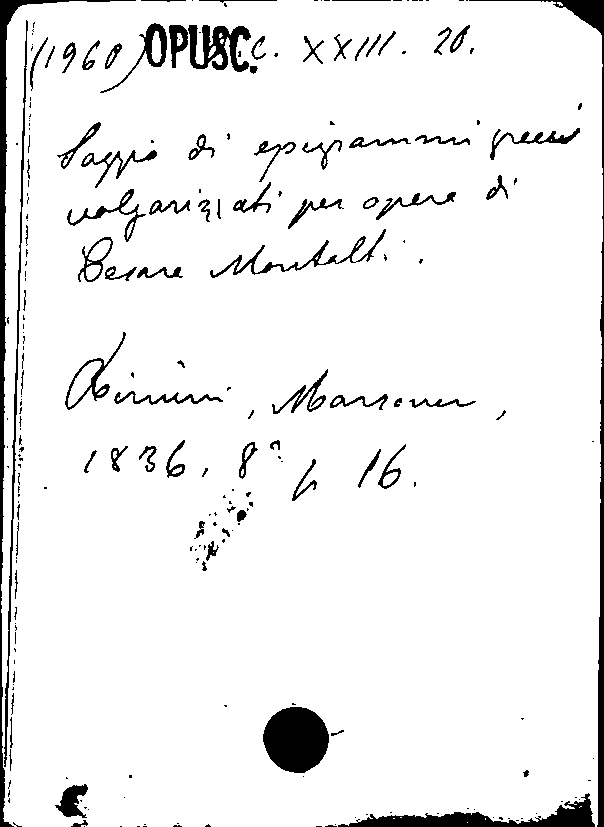 (1960) OPUSC. C. XXIII. 20.
Saggio di epigrammi greci
volgarizzati per opera di
Cesare Montalti.
Rimini, Marsoner,
1836, 8° p 16.